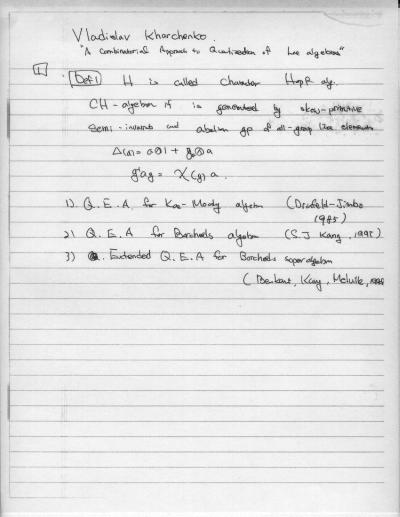 Vladislav Kharchenko.
"A Combinatorial Approach to Quantization of Lie algebras"
1 . Def 1 H is called Character Hopf alg.
CH-algebra if is generated by skew-primitive
semi-invariants and abelian gp of all-group like elements
Δ(a) = a⊗1 + g⊗a
g⁻¹ag = χ(g) a .
1). Q. E. A. for Kac-Moody algebra (Drinfeld-Jimbo
1985)
2) Q. E. A for Borcherds algebra (S.J Kang, 1995)
3) Extended Q. E. A for Borcherds superalgebra
( Benkart, Kang, Melville,